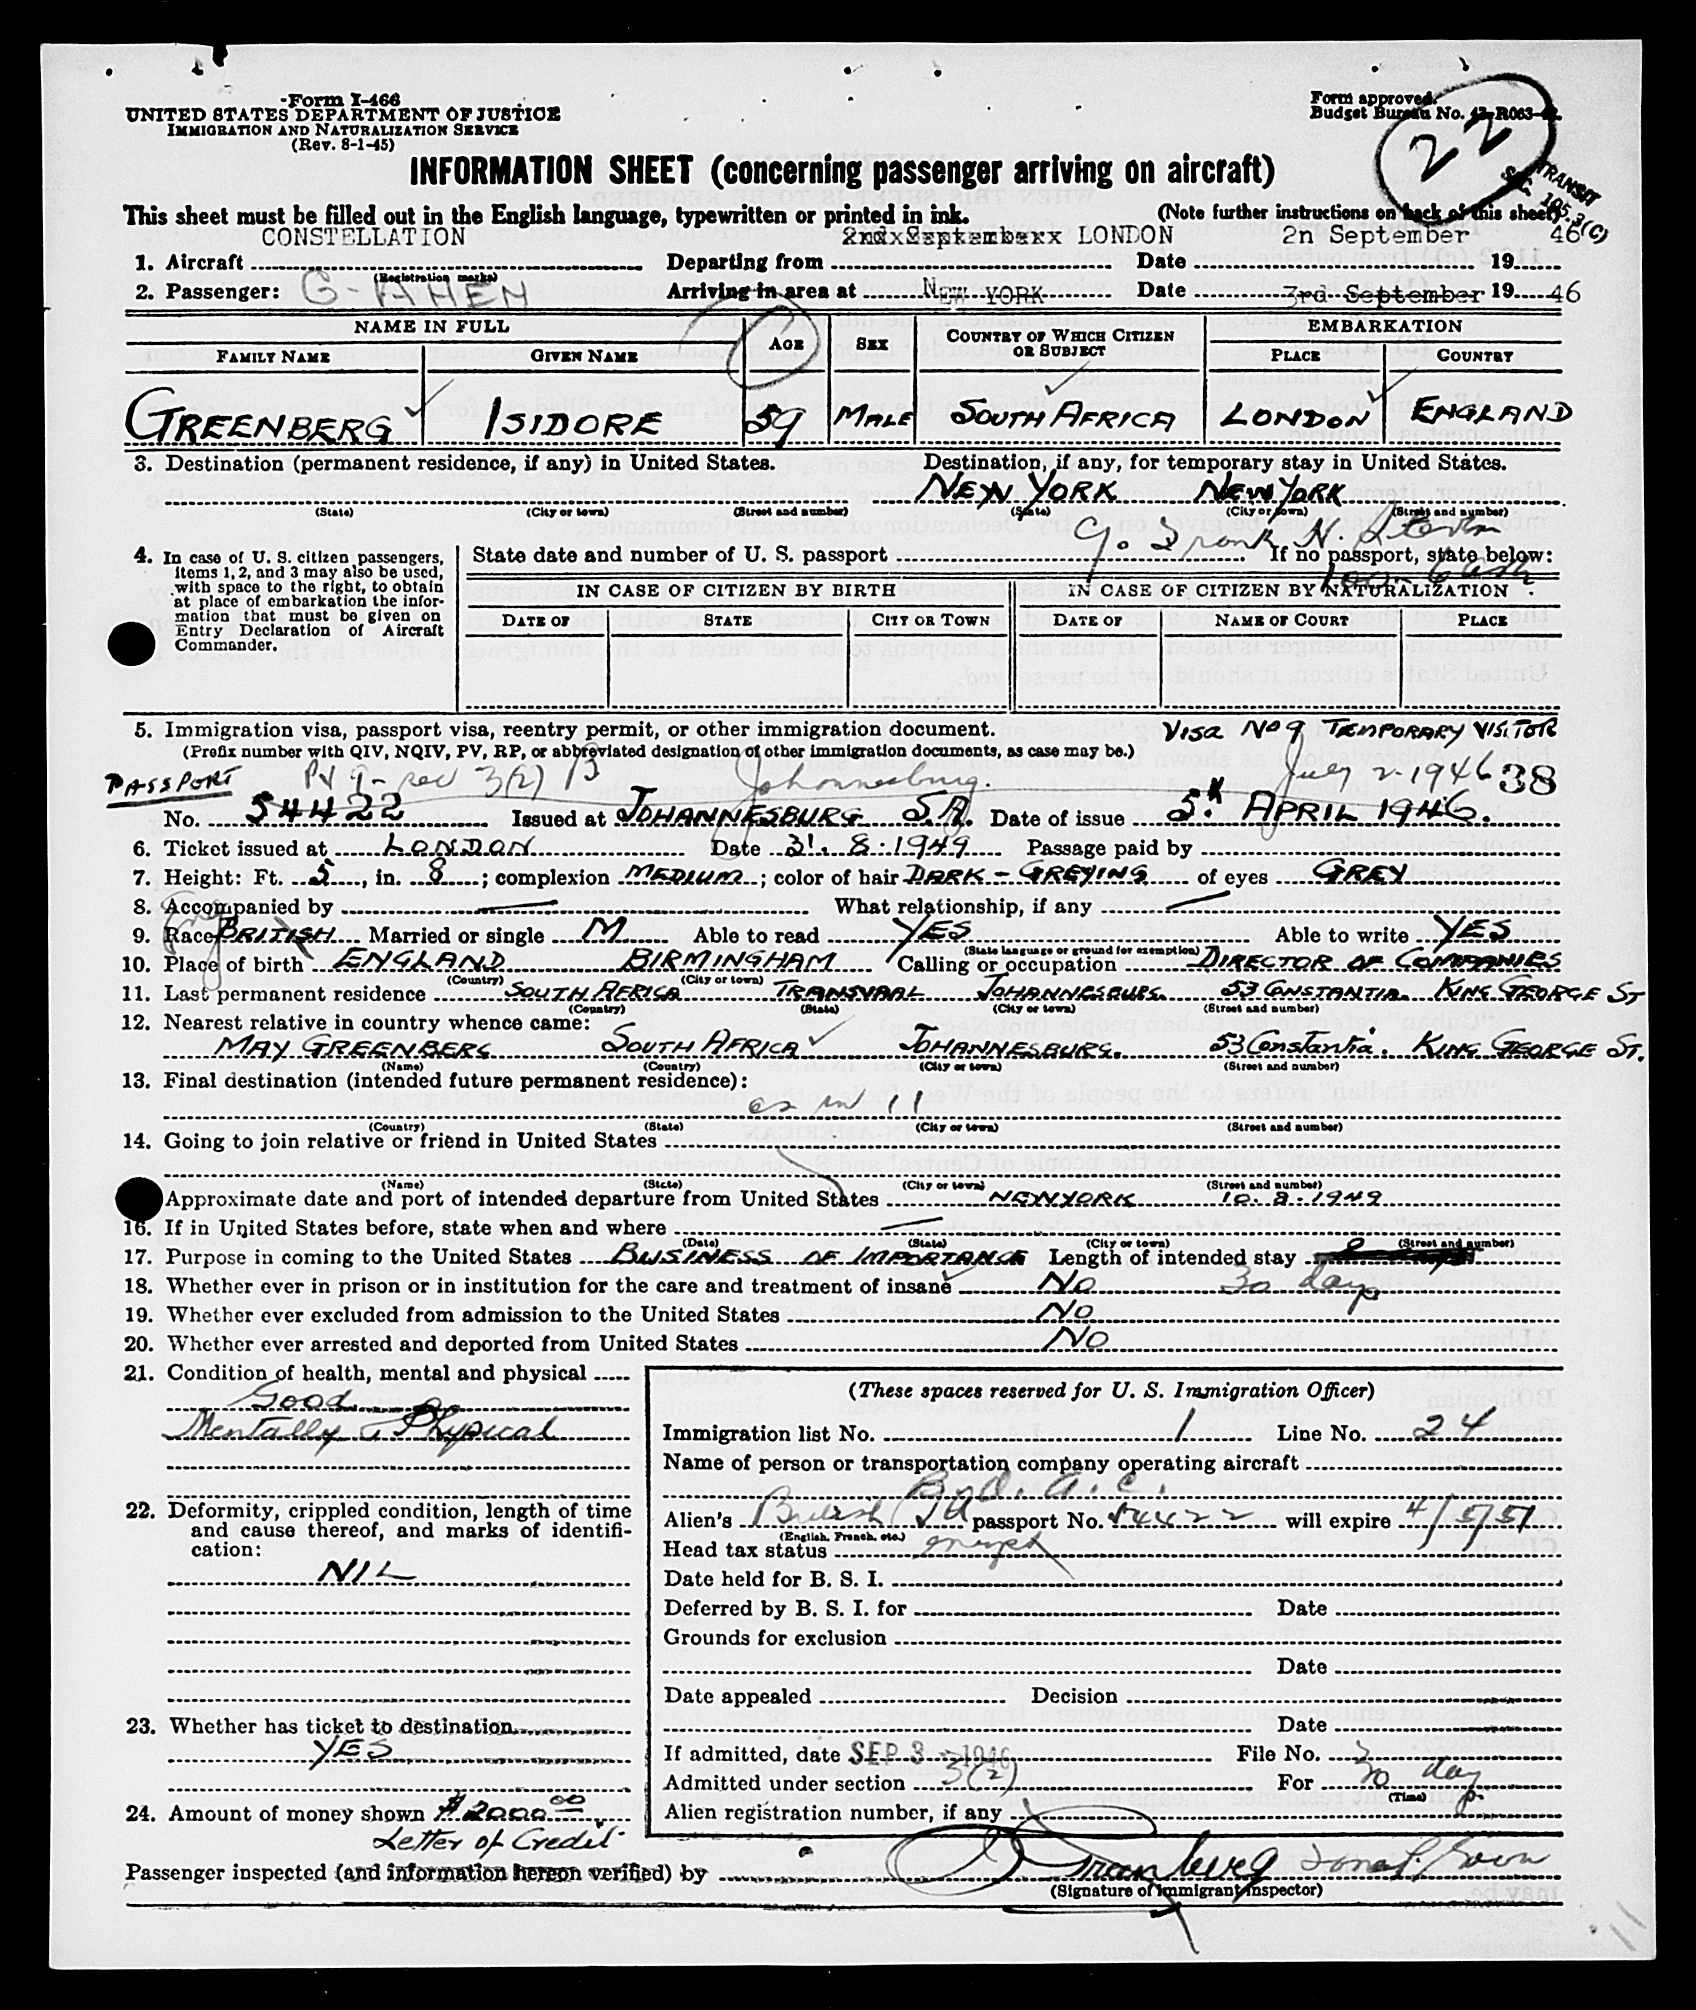 Form I-466
UNITED STATES DEPARTMENT OF JUSTICE
IMMIGRATION AND NATURALIZATION SERVICE
(Rev. 8-1-45)
Form approved.
Budget Bureau No. 43-R063-
22
TRANSIT
SEC. 105.3(C)
INFORMATION SHEET (concerning passenger arriving on aircraft)
This sheet must be filled out in the English language, typewritten or printed in ink. (Note further instructions on back of this sheet)
CONSTELLATION 2ndxSeptemberxx LONDON 2n September 46
1. Aircraft Departing from Date 19
(Registration marks)
2. Passenger: G-AHEN Arriving in area at NEW YORK Date 3rd September 19 46
NAME IN FULL AGE SEX COUNTRY OF WHICH CITIZEN OR SUBJECT EMBARKATION
FAMILY NAME GIVEN NAME PLACE COUNTRY
GREENBERG ISIDORE 59 MALE SOUTH AFRICA LONDON ENGLAND
3. Destination (permanent residence, if any) in United States. Destination, if any, for temporary stay in United States.
NEW YORK NEW YORK
(State) (City or town) (Street and number) (State) (City or town) (Street and number)
4. In case of U. S. citizen passengers, items 1, 2, and 3 may also be used, with space to the right, to obtain at place of embarkation the information that must be given on Entry Declaration of Aircraft Commander.
State date and number of U. S. passport If no passport, state below:
IN CASE OF CITIZEN BY BIRTH IN CASE OF CITIZEN BY NATURALIZATION
DATE OF STATE CITY OR TOWN DATE OF NAME OF COURT PLACE
5. Immigration visa, passport visa, reentry permit, or other immigration document. VISA No 9 TEMPORARY VISITOR
(Prefix number with QIV, NQIV, PV, RP, or abbreviated designation of other immigration documents, as case may be.)
PASSPORT PV 9 - sec 3(2) B Johannesburg. July 2-1946 38
No. 54422 Issued at JOHANNESBURG S.A. Date of issue 5th APRIL 1946.
6. Ticket issued at LONDON Date 31.8.1949 Passage paid by
7. Height: Ft. 5, in. 8; complexion MEDIUM; color of hair DARK - GREYING of eyes GREY
8. Accompanied by — What relationship, if any —
9. Race BRITISH Married or single M Able to read YES Able to write YES
(State language or ground for exemption)
10. Place of birth ENGLAND BIRMINGHAM Calling or occupation DIRECTOR OF COMPANIES
(Country) (City or town)
11. Last permanent residence SOUTH AFRICA TRANSVAAL JOHANNESBURG. 53 CONSTANTIA. KING GEORGE ST
(Country) (State) (City or town) (Street and number)
12. Nearest relative in country whence came:
MAY GREENBERG SOUTH AFRICA JOHANNESBURG. 53 Constantia. KING GEORGE ST.
(Name) (Country) (City or town) (Street and number)
13. Final destination (intended future permanent residence):
as in 11
(Country) (State) (City or town) (Street and number)
14. Going to join relative or friend in United States
(Name) (State) (City or town) (Street and number)
Approximate date and port of intended departure from United States NEW YORK 10.8.1949
16. If in United States before, state when and where —
(Date) (State) (City or town) (Street and number)
17. Purpose in coming to the United States BUSINESS OF IMPORTANCE Length of intended stay
18. Whether ever in prison or in institution for the care and treatment of insane NO 30 days
19. Whether ever excluded from admission to the United States NO
20. Whether ever arrested and deported from United States NO
21. Condition of health, mental and physical
Good
Mentally & Physical
22. Deformity, crippled condition, length of time and cause thereof, and marks of identification:
NIL
23. Whether has ticket to destination
YES
24. Amount of money shown $ 2000 00
Letter of Credit
(These spaces reserved for U. S. Immigration Officer)
Immigration list No. 1 Line No. 24
Name of person or transportation company operating aircraft
B.O.A.C.
Alien's British SA passport No. 54422 will expire 4/5/51
(English, French, etc.)
Head tax status exempt
Date held for B. S. I.
Deferred by B. S. I. for Date
Grounds for exclusion
Date
Date appealed Decision
Date
If admitted, date SEP 3 - 1946 File No.
Admitted under section 3(2) For 30 days
(Time)
Alien registration number, if any
Passenger inspected (and information hereon verified) by
(Signature of Immigrant Inspector)